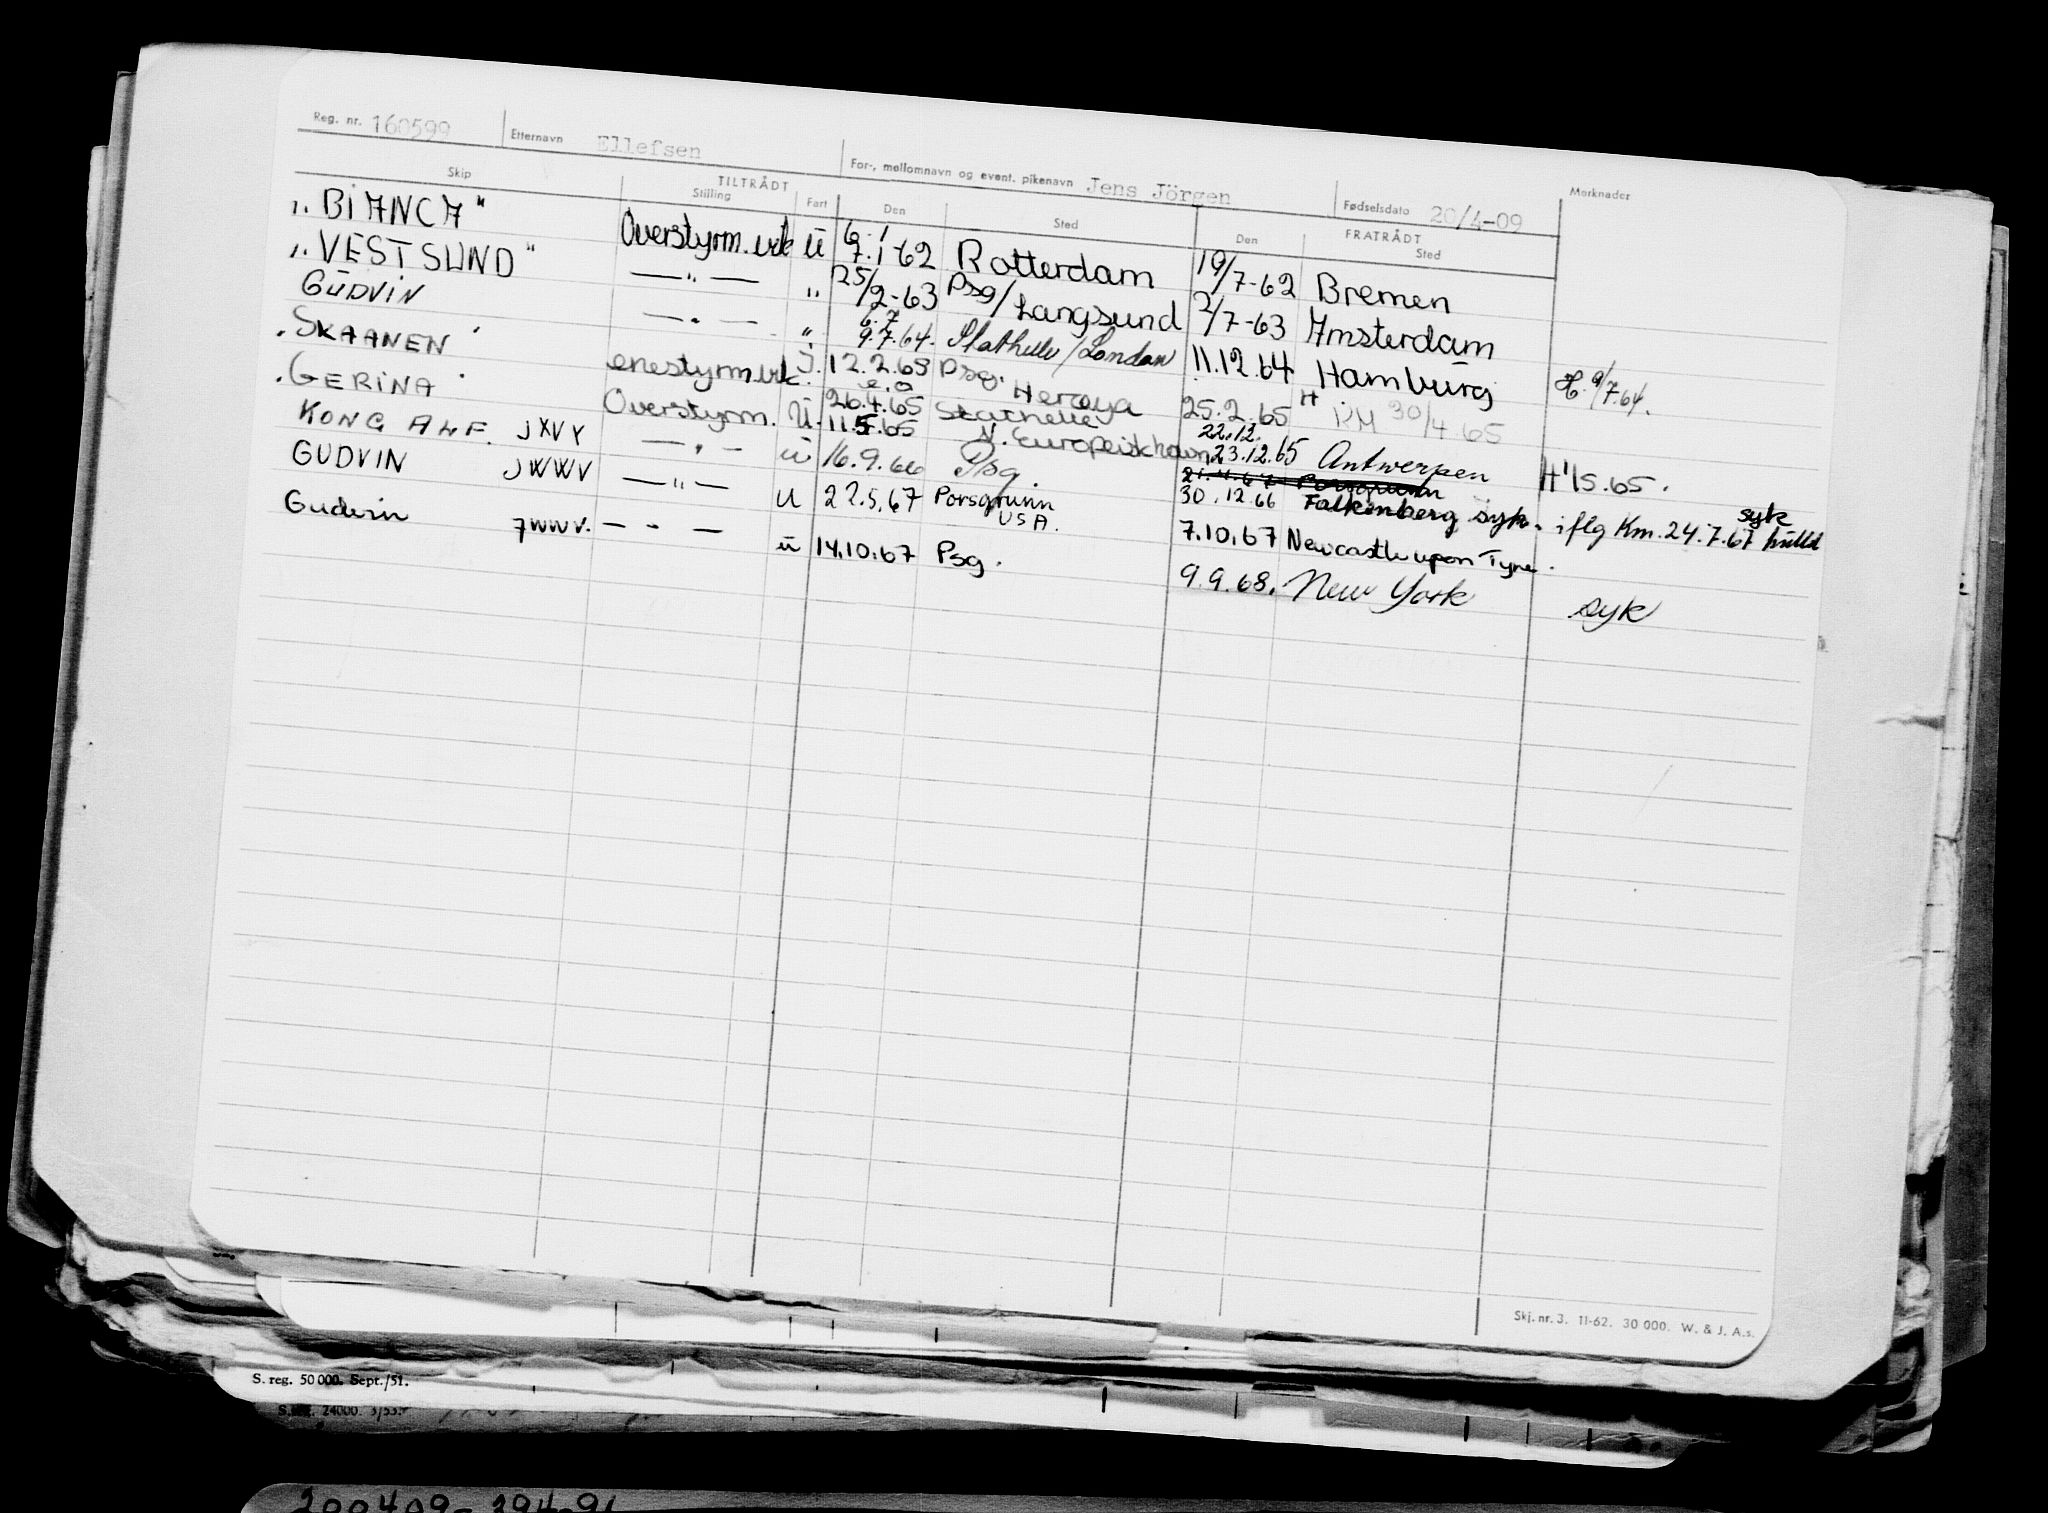 Reg. nr. 160599 Etternavn Ellefsen For-, mellomnavn og event. pikenavn Jens Jörgen Fødselsdato 20/4-09 Merknader
Skip TILTRÅDT Stilling Fart Den Sted FRATRÅDT Den Sted
„BIANCA" Overstyrm. vik ū 6.1 7.1-62 Rotterdam 19/7-62 Bremen
„VESTSUND" —"— " 25/2-63 Psg/Langsund 2/7-63 Amsterdam
GUDVIN —"— " 6.7 9.7.64. Stathelle/London 11.12.64 Hamburg H. 9/7.64.
"SKAANEN" enestyrm. vik. I. 12.2.65 Psg. Herøya 25.2.65 H RM 30/4 65
"GERINA" Overstyrm. U. 26.4.65 11.5.65 Stathelle N. Europeisk havn 22.12. 23.12.65 Antwerpen H 1/5.65.
KONG ALF. JXVY —"— ū 16.9.66 Psg. 30.12.66 Falkenberg syk. iflg Km. 24.7.67 syk
GUDVIN JWWV —"— U 22.5.67 Porsgrunn USA. 7.10.67 Newcastle upon Tyne.
Gudvin JWWV. —"— ū 14.10.67 Psg. 9.9.68. New York syk
Skj. nr. 3. 11-62. 30 000. W. & J. A.s.
S. reg. 50 000. Sept./51.
24000. 3/53.